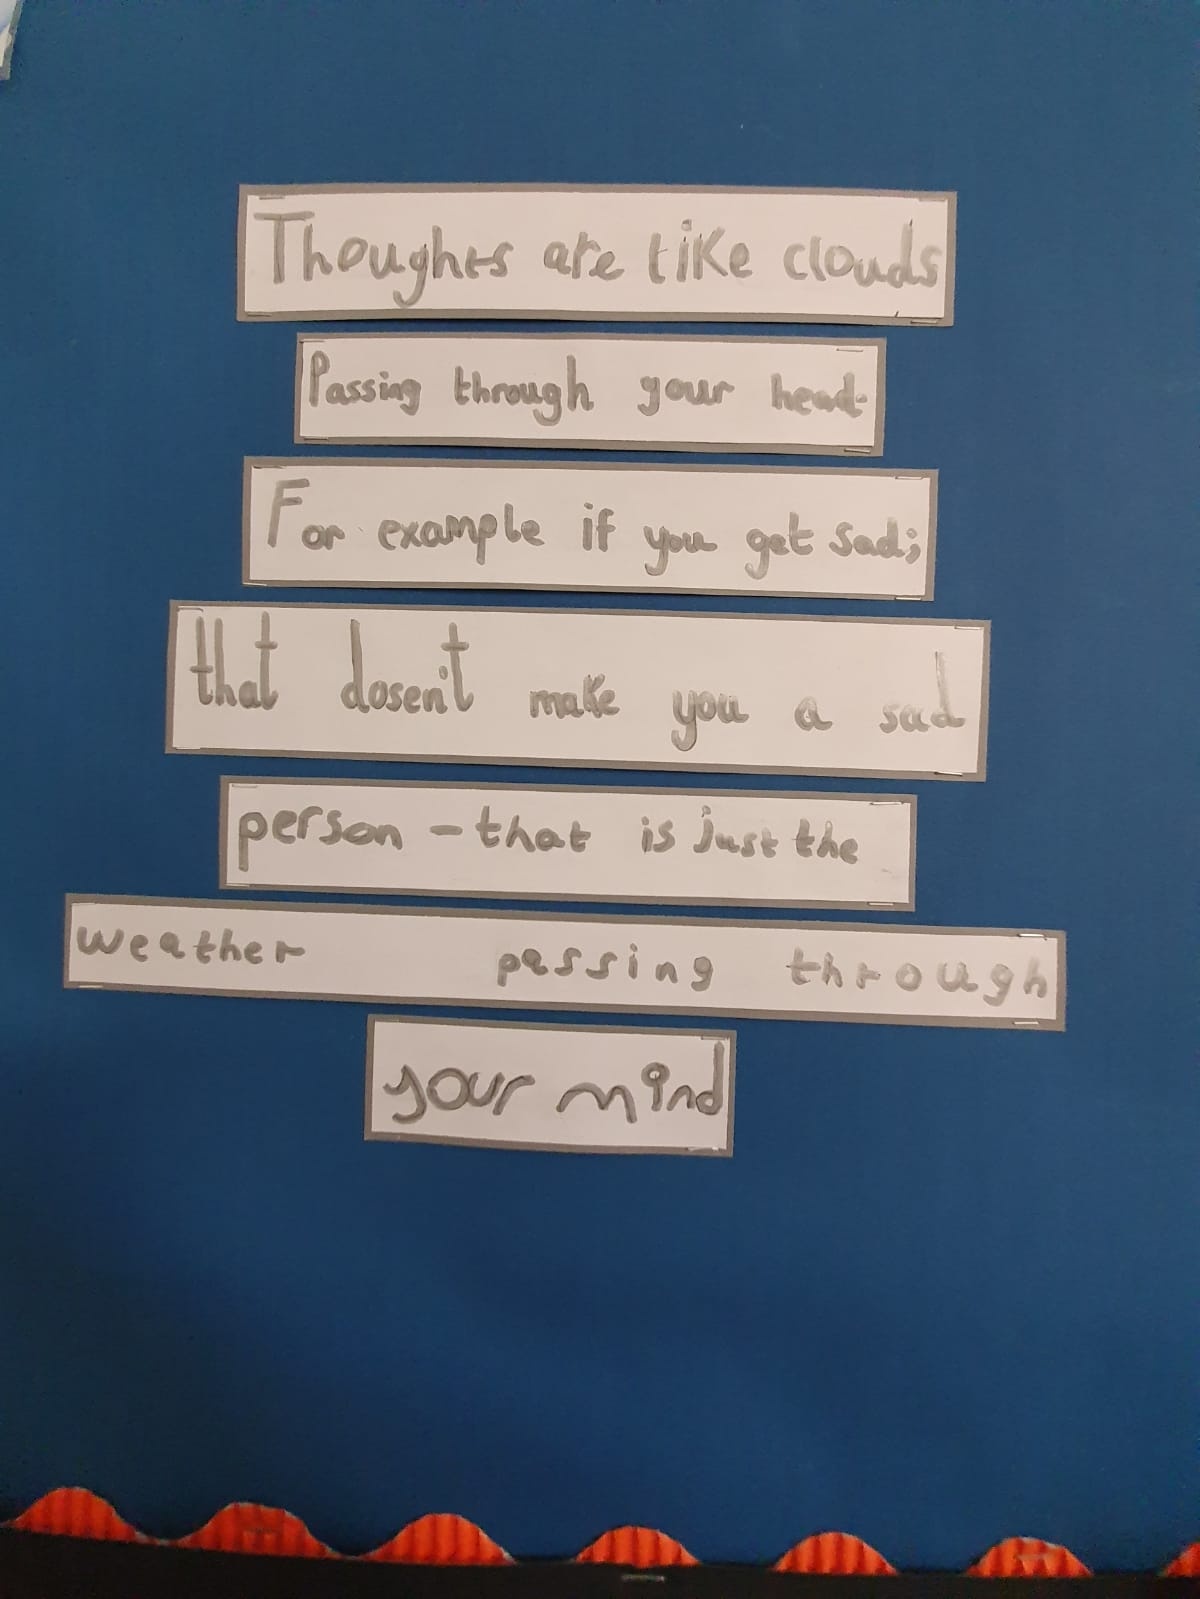 Thoughts are like clouds
Passing through your head.
For example if you get sad;
that dosen't make you a sad
person - that is just the
weather passing through
your mind